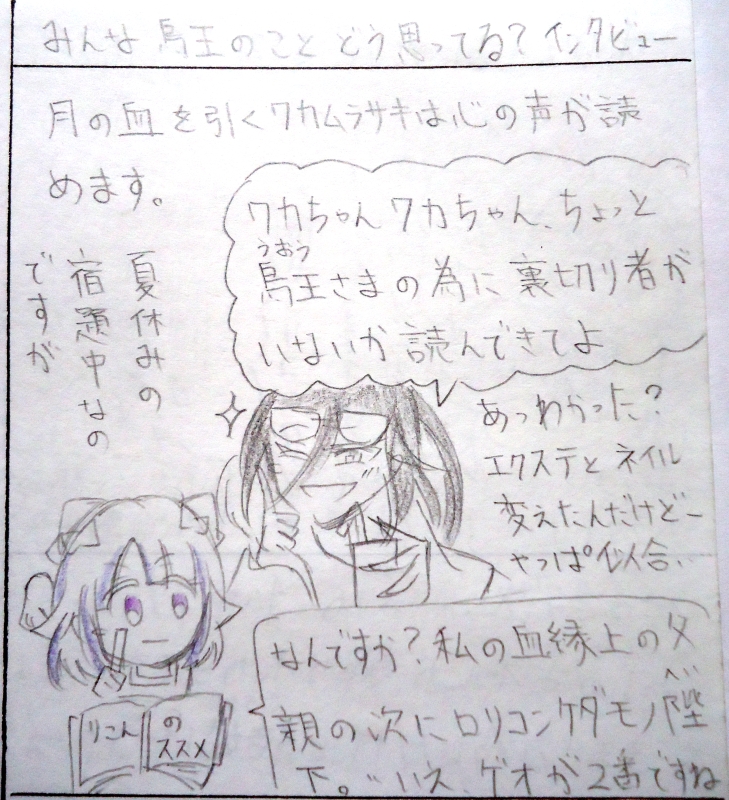 みんな烏王のことどう思ってる?インタビュー
月の血を引くワカムラサキは心の声が読
めます。
ワカちゃんワカちゃん、ちょっと
うおう
烏王さまの為に裏切り者が
いないか読んできてよ
夏休みの
宿題中なの
ですが
あっわかった?
エクステとネイル
変えたんだけどー
やっぱ似合、、
なんですか?私の血縁上の父
親の次にロリコンケダモノ陛
へい
下。…いえ、ゲオが2番ですね
りこん
の
ススメ